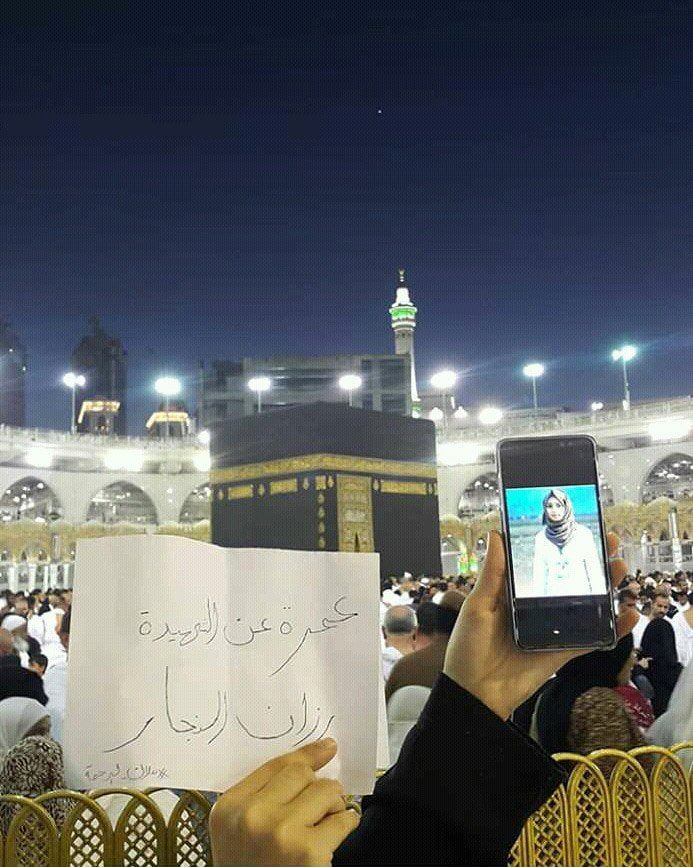 عمرة عن الشهيدة
رزان النجار
#ملائكة_الرحمة